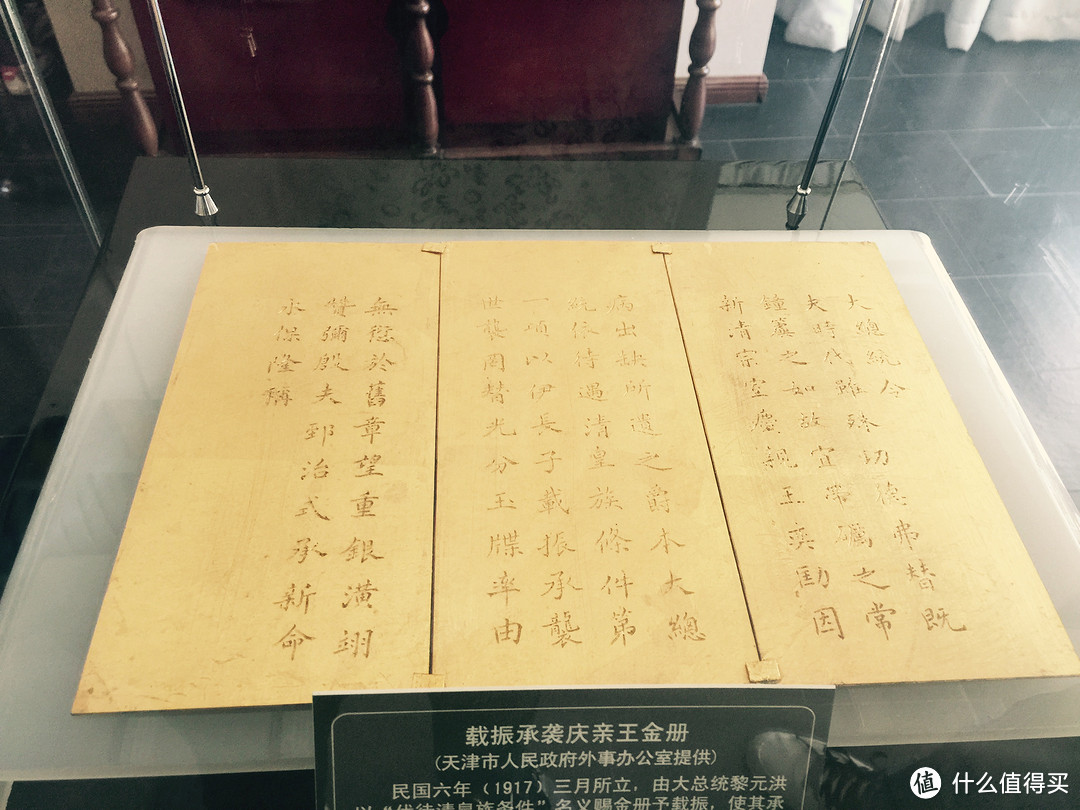 大總統令
夫時代雖殊功德弗替既
鐘簴之如故宜帶礪之常
新清宗室慶親王奕劻因
病出缺所遺之爵本大總
統依待遇清皇族條件第
一項以伊長子載振承襲
世襲罔替光分玉牒率由
無愆於舊章望重銀潢翊
贊彌殷夫郅治式承新命
永保隆稱
载振承袭庆亲王金册
(天津市人民政府外事办公室提供)
民国六年（1917）三月所立，由大总统黎元洪
以“优待清皇族条件”名义赐金册予载振，使其承
值 什么值得买